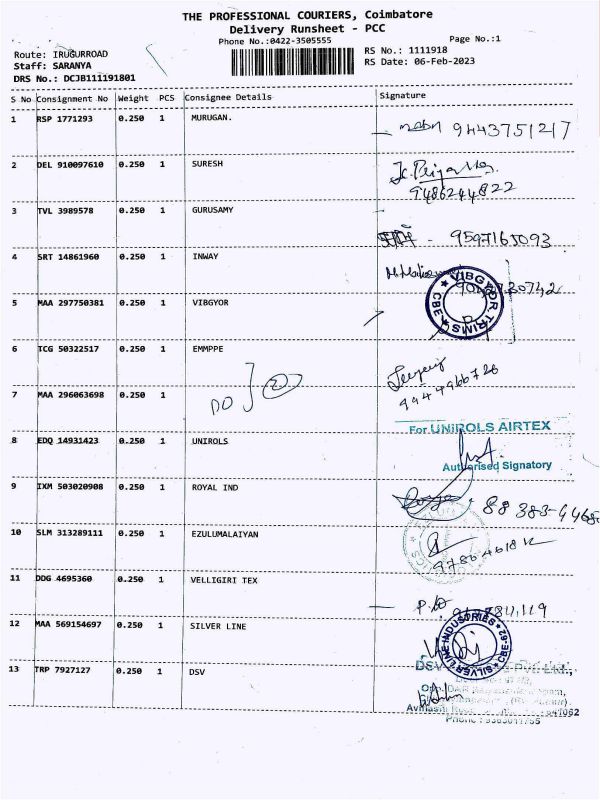 THE PROFESSIONAL COURIERS, Coimbatore
Delivery Runsheet - PCC
Phone No.:0422-3505555
Page No.:1
Route: IRUGURROAD
RS No.: 1111918
Staff: SARANYA
RS Date: 06-Feb-2023
DRS No.: DCJB111191801
S No Consignment No Weight PCS Consignee Details Signature
1 RSP 1771293 0.250 1 MURUGAN.
9443751217
2 DEL 910097610 0.250 1 SURESH
9486244822
3 TVL 3989578 0.250 1 GURUSAMY
9597165093
4 SRT 14861960 0.250 1 INWAY
5 MAA 297750381 0.250 1 VIBGYOR
VIBGYOR TRIMS CBE
6 TCG 50322517 0.250 1 EMMPPE
9944966726
7 MAA 296063698 0.250 1
DO 2
For UNIROLS AIRTEX
8 EDQ 14931423 0.250 1 UNIROLS
Authorised Signatory
9 IXM 503020908 0.250 1 ROYAL IND
10 SLM 313289111 0.250 1 EZULUMALAIYAN
11 DDG 4695360 0.250 1 VELLIGIRI TEX
12 MAA 569154697 0.250 1 SILVER LINE
SILVER LINE INDUSTRIES CBE-62
13 TRP 7927127 0.250 1 DSV
DSV PVT Ltd.,